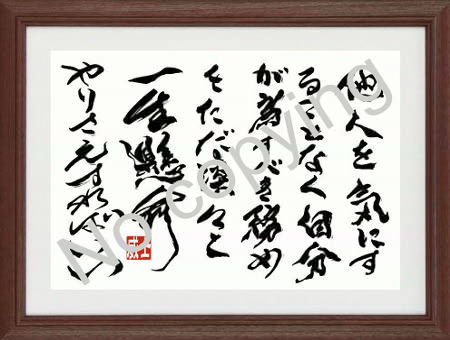 他人を気にす
ることなく自分
が為すべき務め
をただ々と
一生懸命
やりさえすればいい
No copying